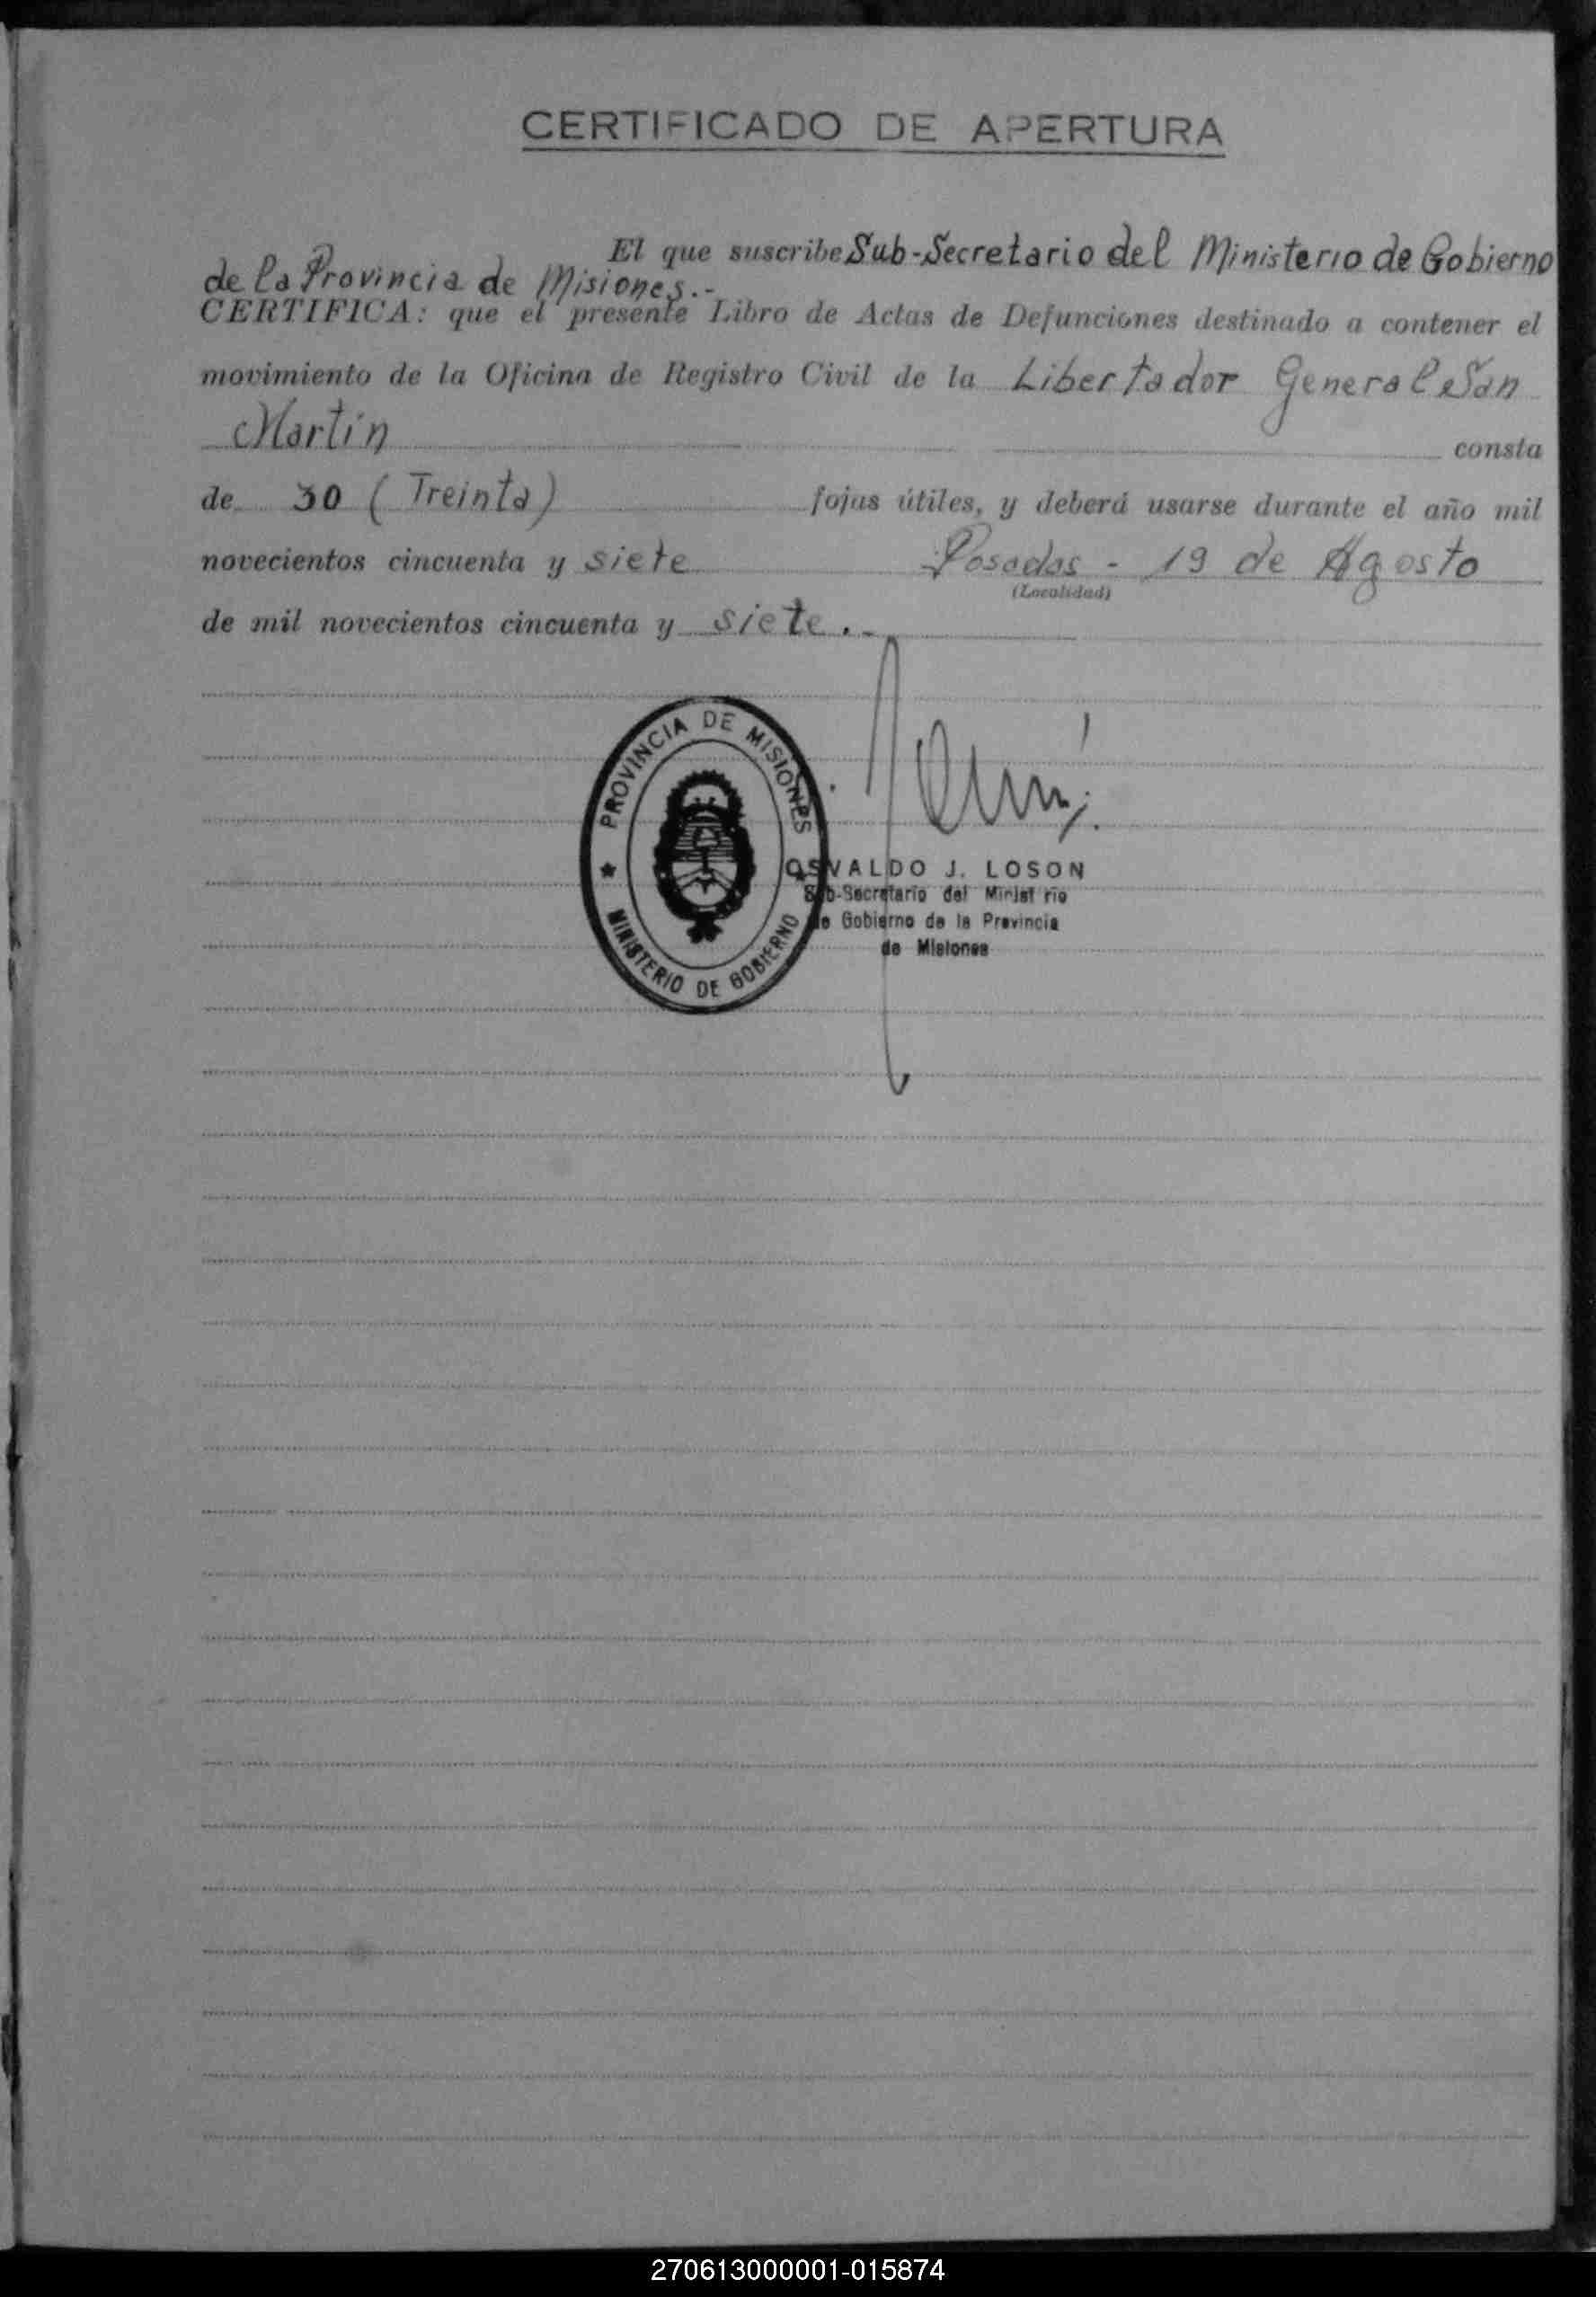 CERTIFICADO DE APERTURA
El que suscribe Sub-Secretario del Ministerio de Gobierno
de la Provincia de Misiones.-
CERTIFICA: que el presente Libro de Actas de Defunciones destinado a contener el
movimiento de la Oficina de Registro Civil de la Libertador General San
Martín consta
de 30 (Treinta) fojas útiles, y deberá usarse durante el año mil
novecientos cincuenta y siete Posadas - 19 de Agosto
(Localidad)
de mil novecientos cincuenta y siete.-
PROVINCIA DE MISIONES
MINISTERIO DE GOBIERNO
OSVALDO J. LOSON
Sub-Secretario del Minist rio
de Gobierno de la Provincia
de Misiones
270613000001-015874